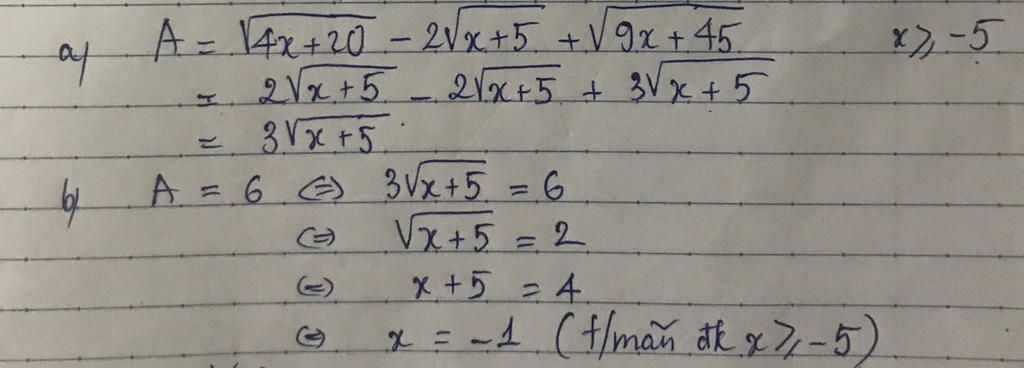 a) A = √(4x+20) - 2√(x+5) + √(9x+45) x ≥ -5
= 2√(x+5) - 2√(x+5) + 3√(x+5)
= 3√(x+5).
b) A = 6 ⇔ 3√(x+5) = 6
⇔ √(x+5) = 2
⇔ x + 5 = 4
⇔ x = -1 (t/mãn đk x ≥ -5)